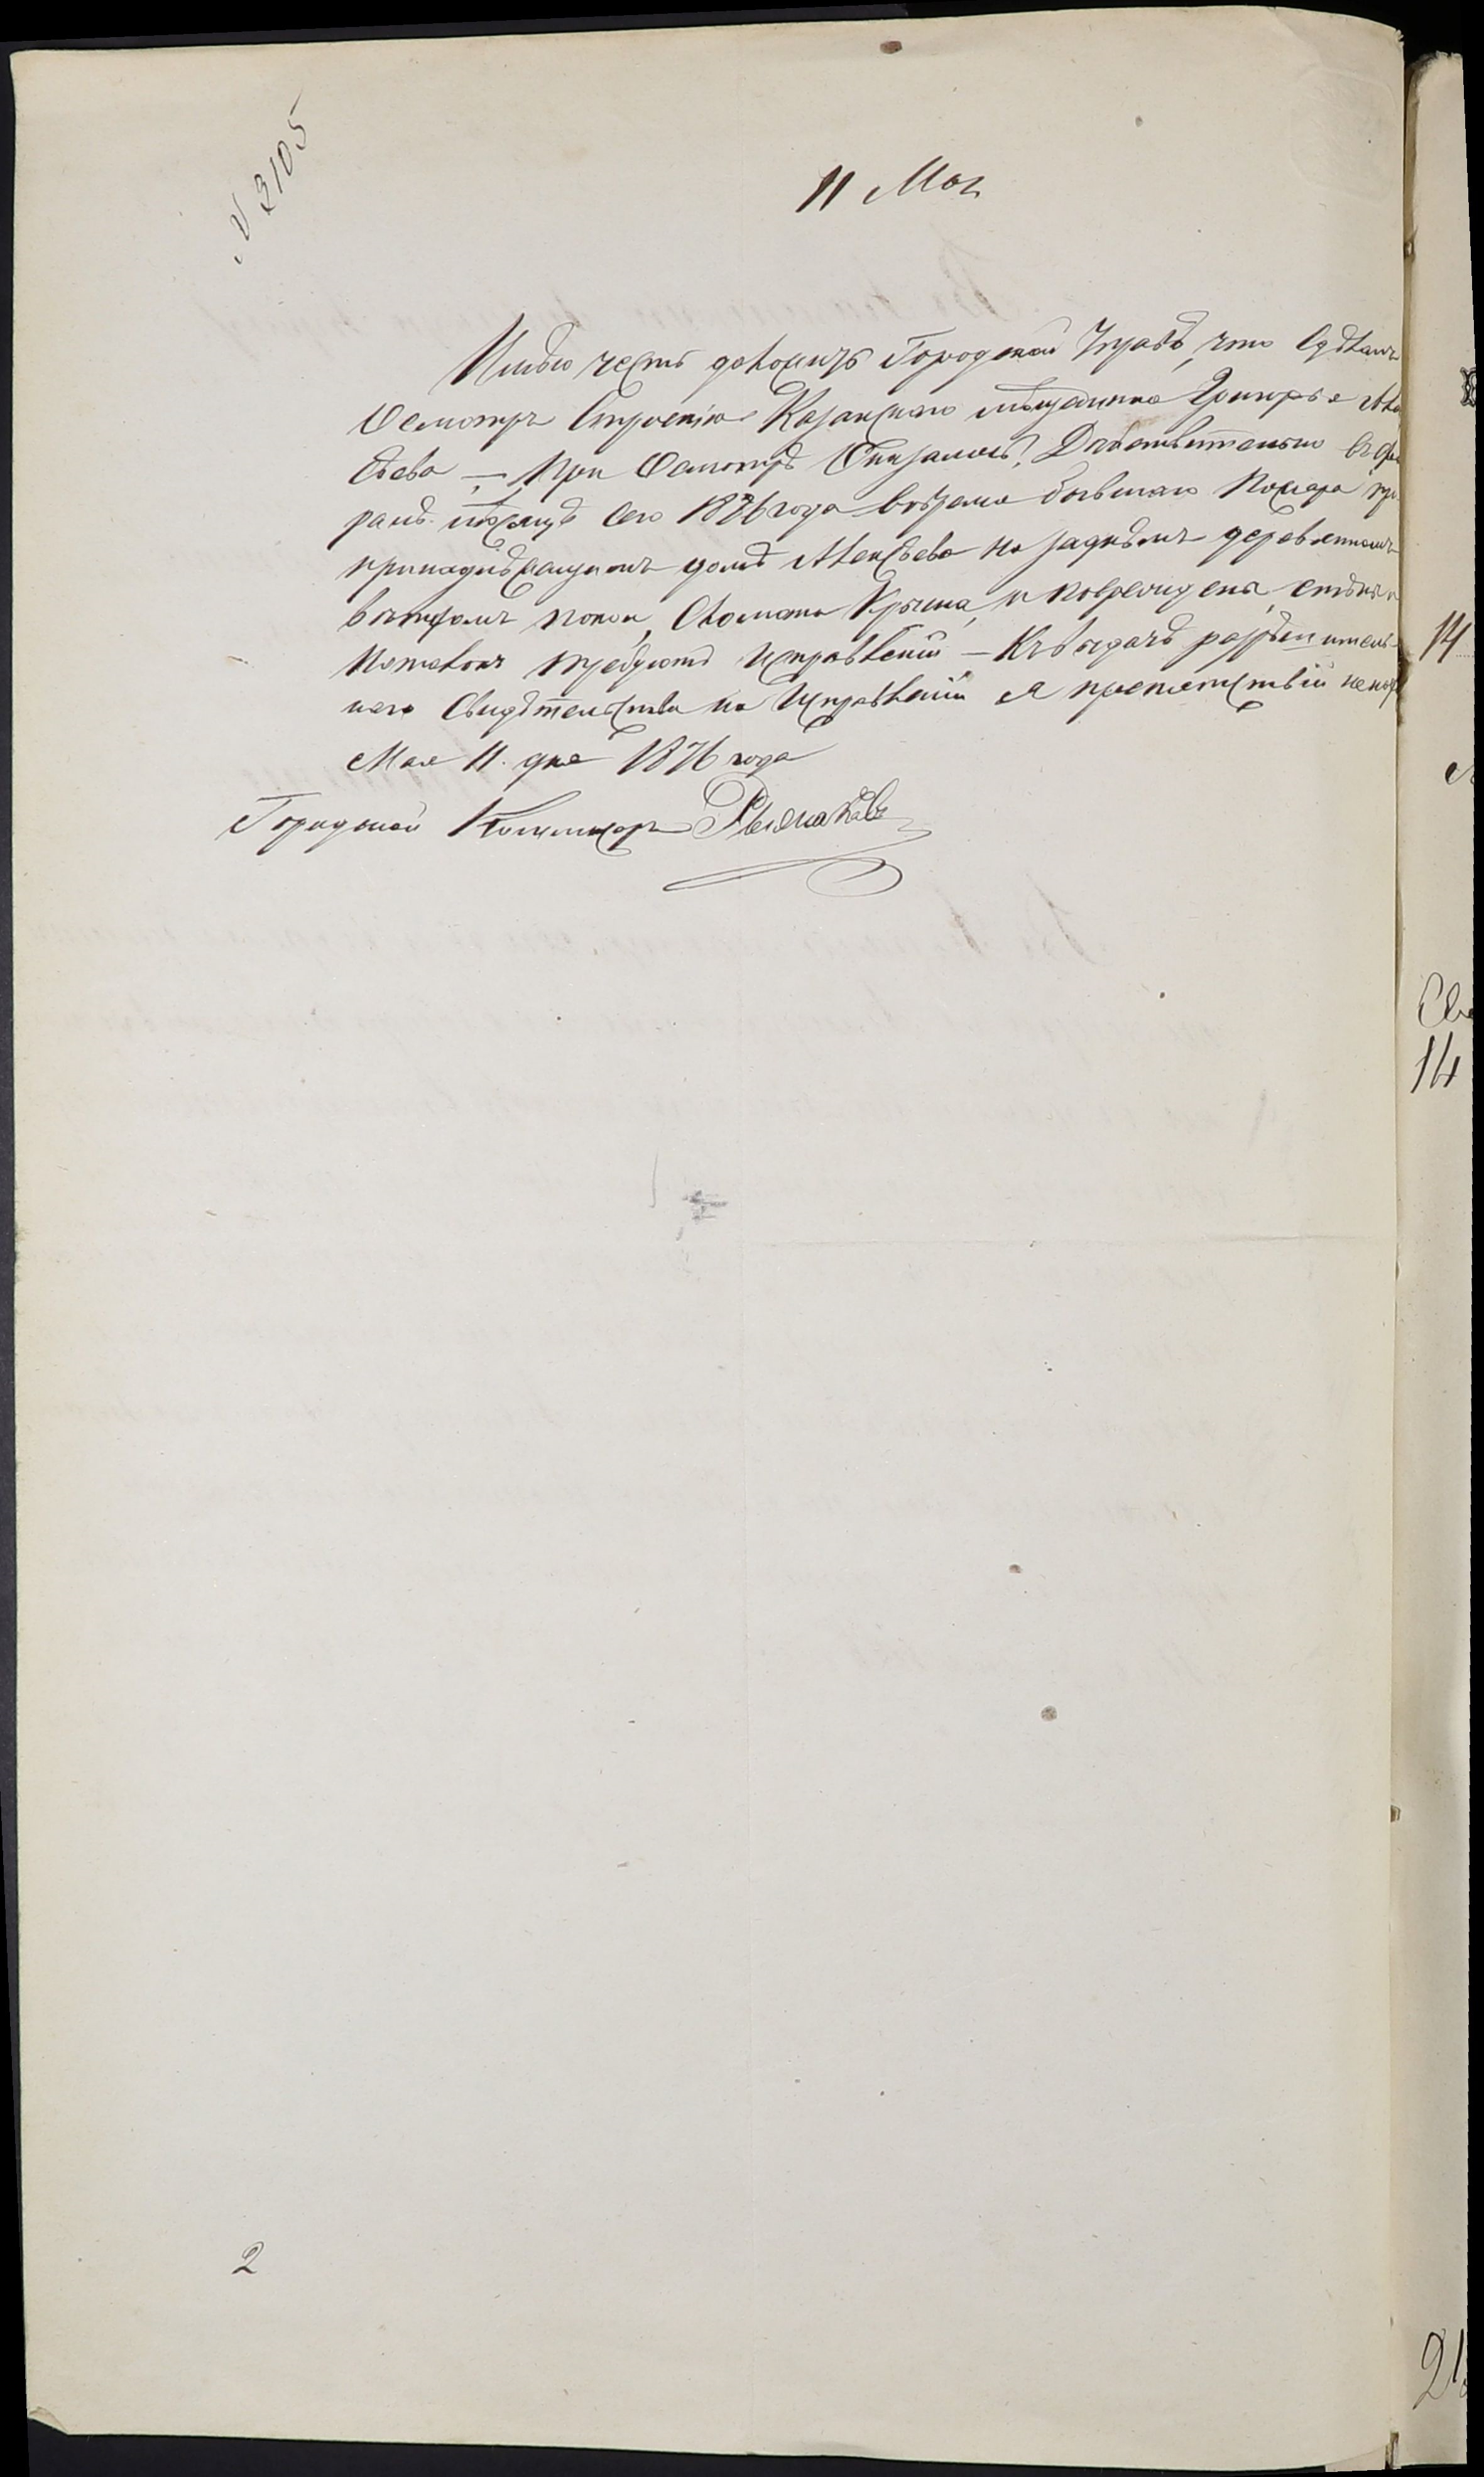 N 3105
11 Мая
Имѣю честь доложить Городской Управѣ, что Сдѣланъ
Осмотръ Строенію Казанскаго мѣщанина Григорья Але
сѣева — При Осмотрѣ Оказалось, Дѣйствительно въ Фев
ралѣ мѣсяцѣ сего 1876 года вовремя бывшаго Пожара при
принадлѣжащемъ домѣ Алексѣева на заднѣмъ деревянномъ
Сломана Крыша, и повреждена стѣна и
Потолокъ требуютъ Исправленій — Къ выдачѣ разрѣшитель-
наго Свидѣтельства на Исправленіи я препятствій не на
Мая 11 дня 1876 года
Городской Коммисаръ
2
14
14
21